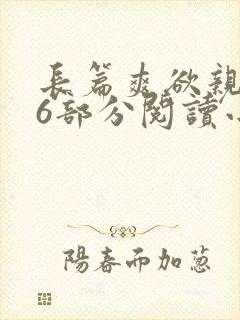 長篇爽欲親
6部分閱讀
陽春而加蔥